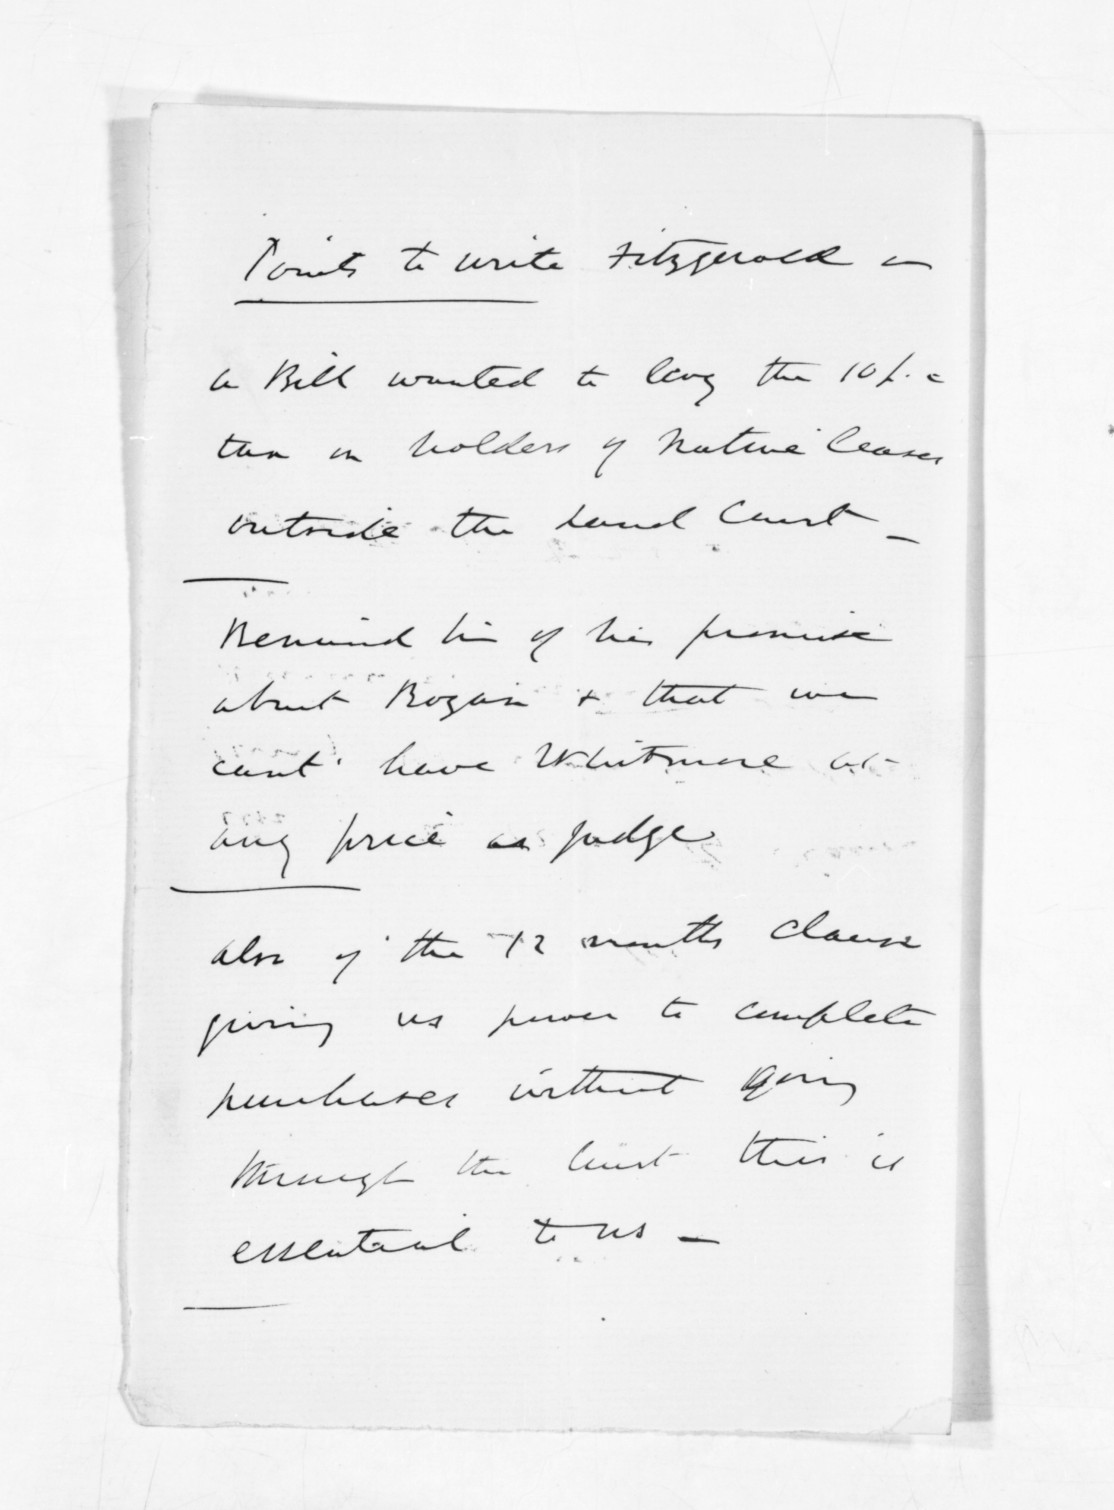 Points to write Fitzgerald on
a Bill wanted to levy the 10 p. c
tax on holders of Native leases
outside the Land Court _
Remind him of his promise
about Rogan & that we
cant have Whitmore at
any price as judge
also of the 12 months clause
giving us power to complete
purchases without going
through the Court this is
essential to us _